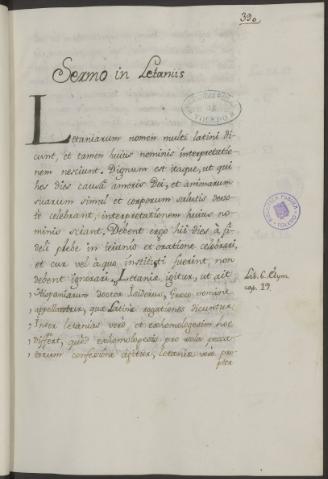 390
Sermo in Letaniis
Letaniarum nomen multi latini di
cunt, et tamen huius nominis interpretatio
nem nesciunt. Dignum est itaque, ut qui
hos dies causâ amoris Dei, et animarum
suarum simul et corporum salutis devo
tè celebrant, interpretationem huius no
minis sciant. Debent ergo hii dies à fi
deli plebe in ieiunio et oratione celebrari,
et cur vel à quo instituti fuerint, non
debent ignorari. Letaniæ igitur, ut ait
Hispaniarum doctor Isidorus, Græco nomine
appellantur, quæ Latinè rogationes dicuntur.
Inter letanias verò, et exhomologesim hoc
differt, quòd exhomologesis pro sola pecca
torum confessione agitur, letaniæ verò pro
pter
Lib. 6. Etym.
cap. 19.
TOLEDO